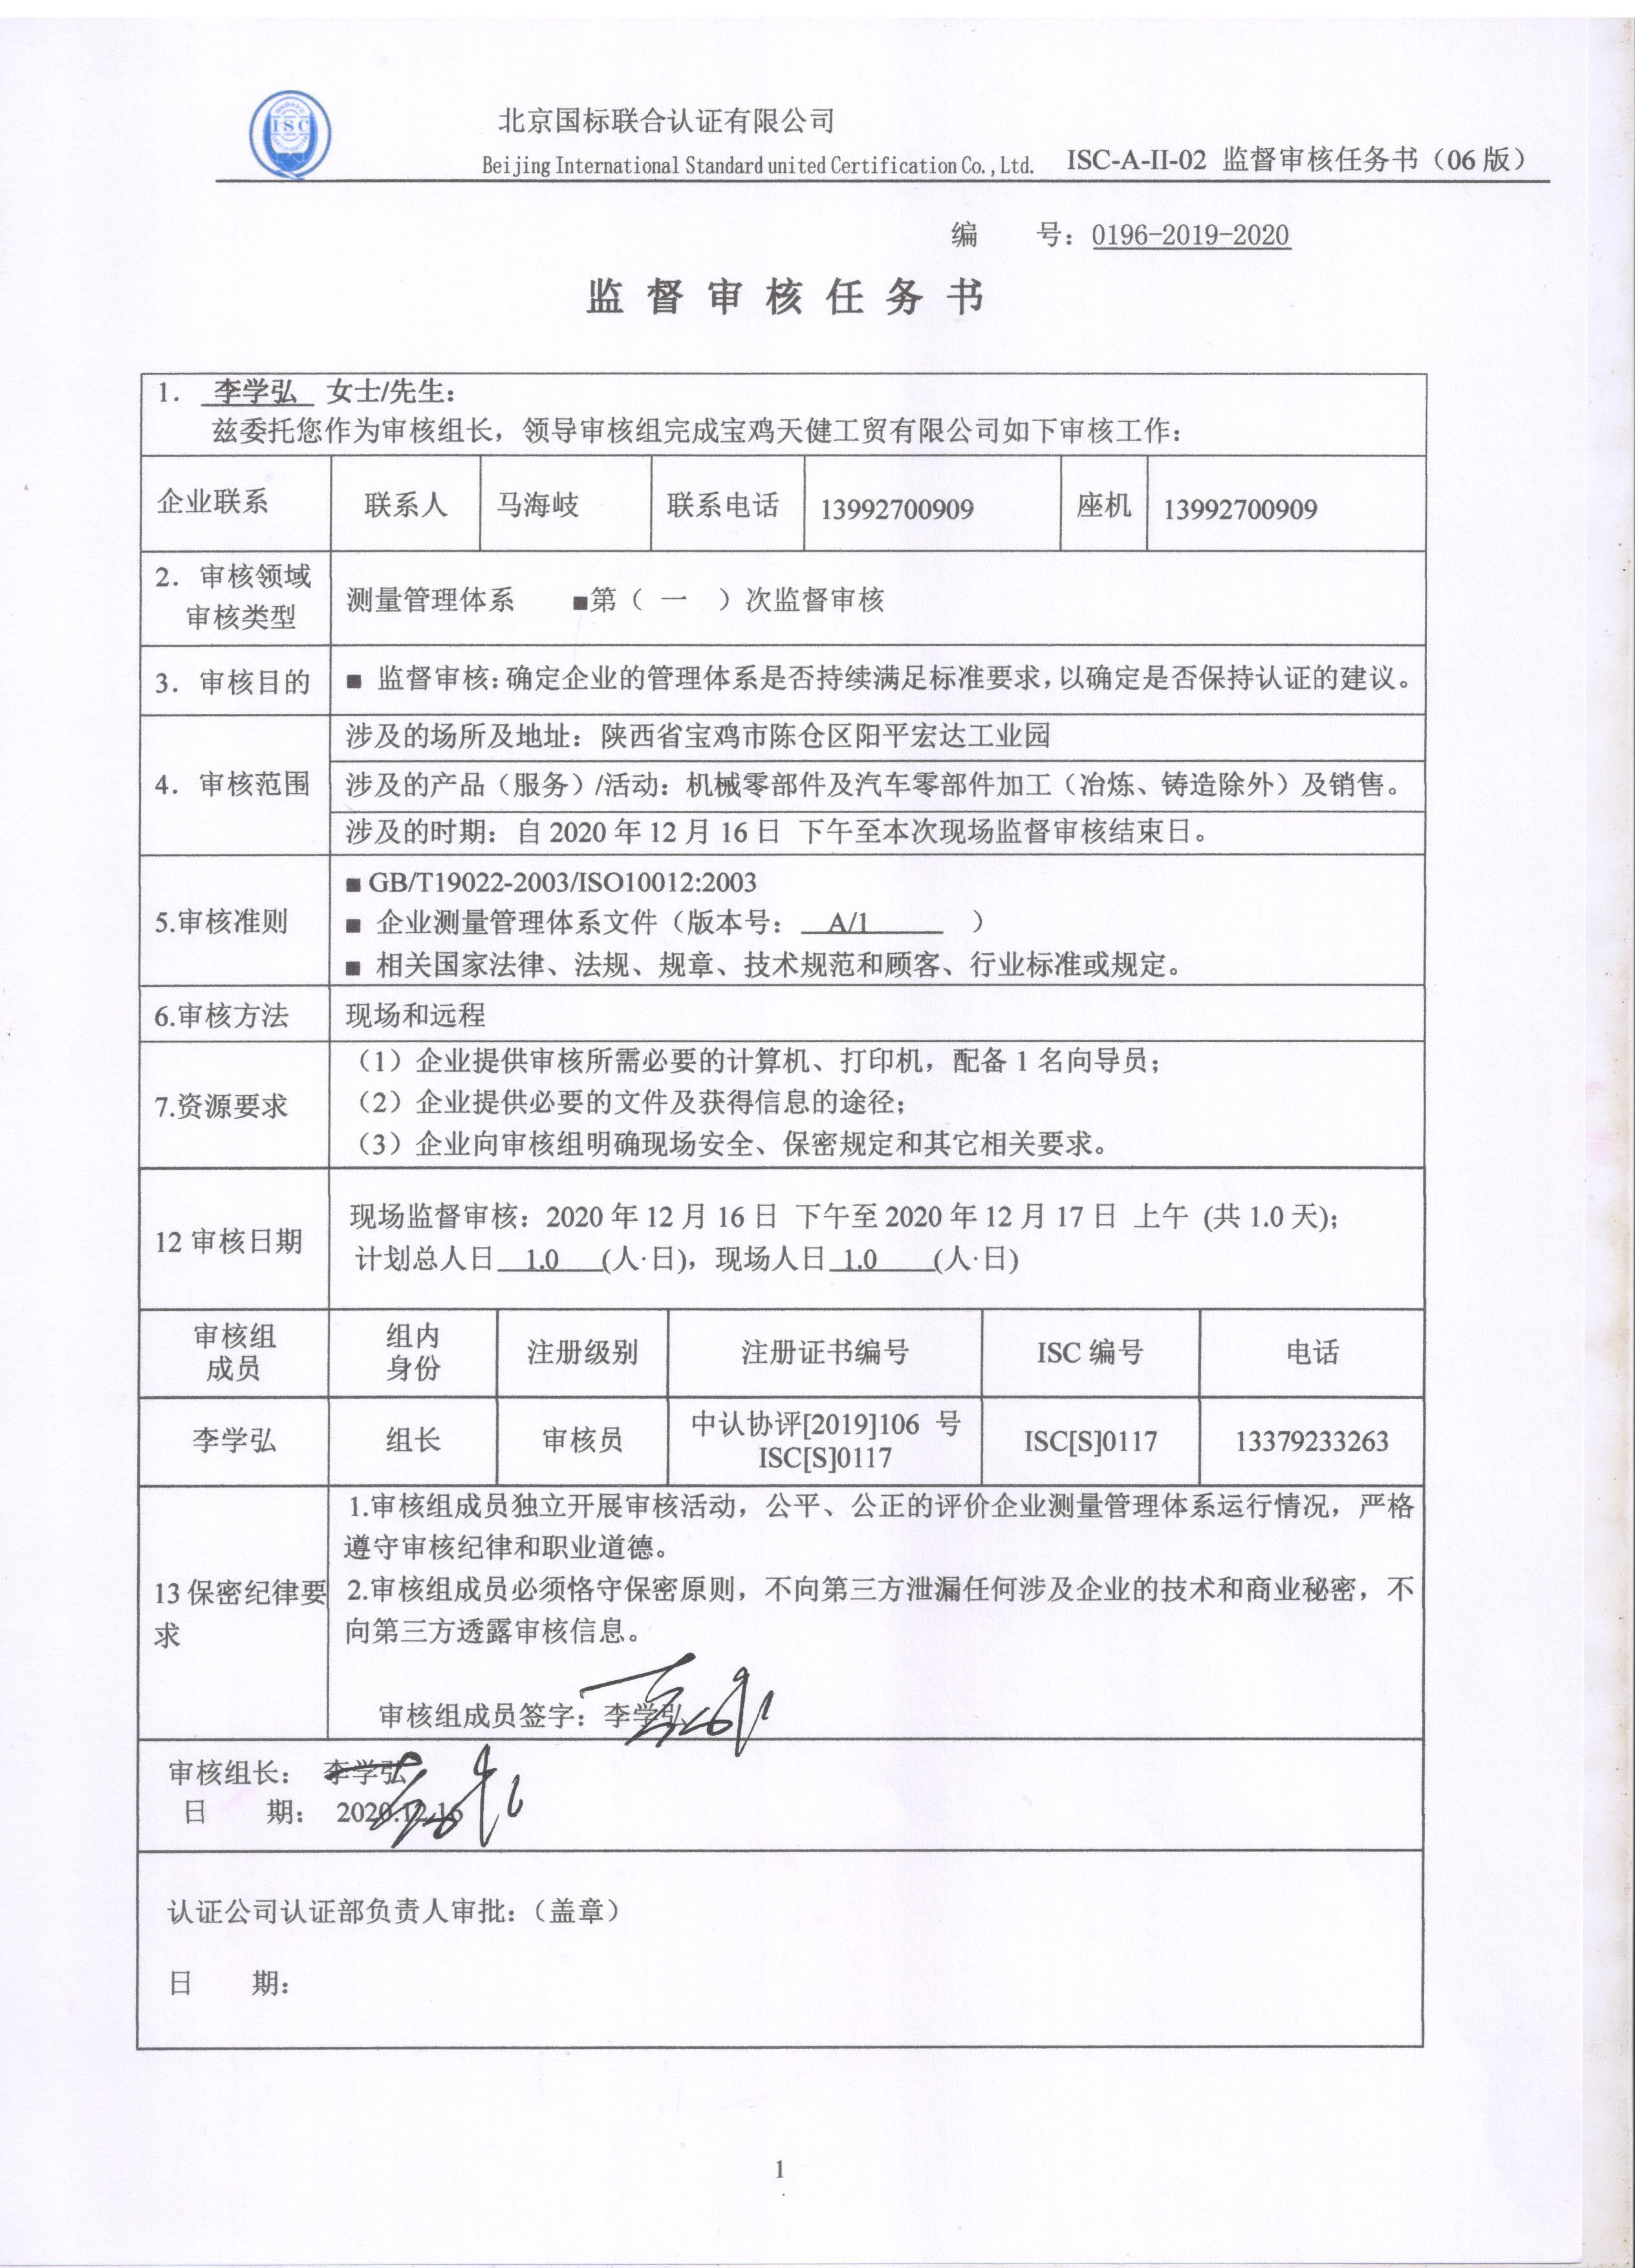 ISC
北京国标联合认证有限公司
Beijing International Standard united Certification Co., Ltd. ISC-A-II-02 监督审核任务书（06 版）
编 号：0196-2019-2020
监 督 审 核 任 务 书
1. 李学弘 女士/先生：
兹委托您作为审核组长，领导审核组完成宝鸡天健工贸有限公司如下审核工作：
企业联系 联系人 马海岐 联系电话 13992700909 座机 13992700909
2．审核领域
审核类型
测量管理体系 ■第（ 一 ）次监督审核
3．审核目的 ■ 监督审核：确定企业的管理体系是否持续满足标准要求，以确定是否保持认证的建议。
4．审核范围
涉及的场所及地址：陕西省宝鸡市陈仓区阳平宏达工业园
涉及的产品（服务）/活动：机械零部件及汽车零部件加工（冶炼、铸造除外）及销售。
涉及的时期：自 2020 年 12 月 16 日 下午至本次现场监督审核结束日。
5.审核准则
■ GB/T19022-2003/ISO10012:2003
■ 企业测量管理体系文件（版本号： A/1 ）
■ 相关国家法律、法规、规章、技术规范和顾客、行业标准或规定。
6.审核方法 现场和远程
7.资源要求
（1）企业提供审核所需必要的计算机、打印机，配备 1 名向导员；
（2）企业提供必要的文件及获得信息的途径；
（3）企业向审核组明确现场安全、保密规定和其它相关要求。
12 审核日期
现场监督审核：2020 年 12 月 16 日 下午至 2020 年 12 月 17 日 上午 (共 1.0 天)；
计划总人日 1.0 (人·日)，现场人日 1.0 (人·日)
审核组
成员
组内
身份
注册级别 注册证书编号 ISC 编号 电话
李学弘 组长 审核员
中认协评[2019]106 号
ISC[S]0117
ISC[S]0117 13379233263
13 保密纪律要
求
1.审核组成员独立开展审核活动，公平、公正的评价企业测量管理体系运行情况，严格
遵守审核纪律和职业道德。
2.审核组成员必须恪守保密原则，不向第三方泄漏任何涉及企业的技术和商业秘密，不
向第三方透露审核信息。
审核组成员签字：李学弘
审核组长： 李学弘
日 期： 2020.12.16
认证公司认证部负责人审批：（盖章）
日 期：
1